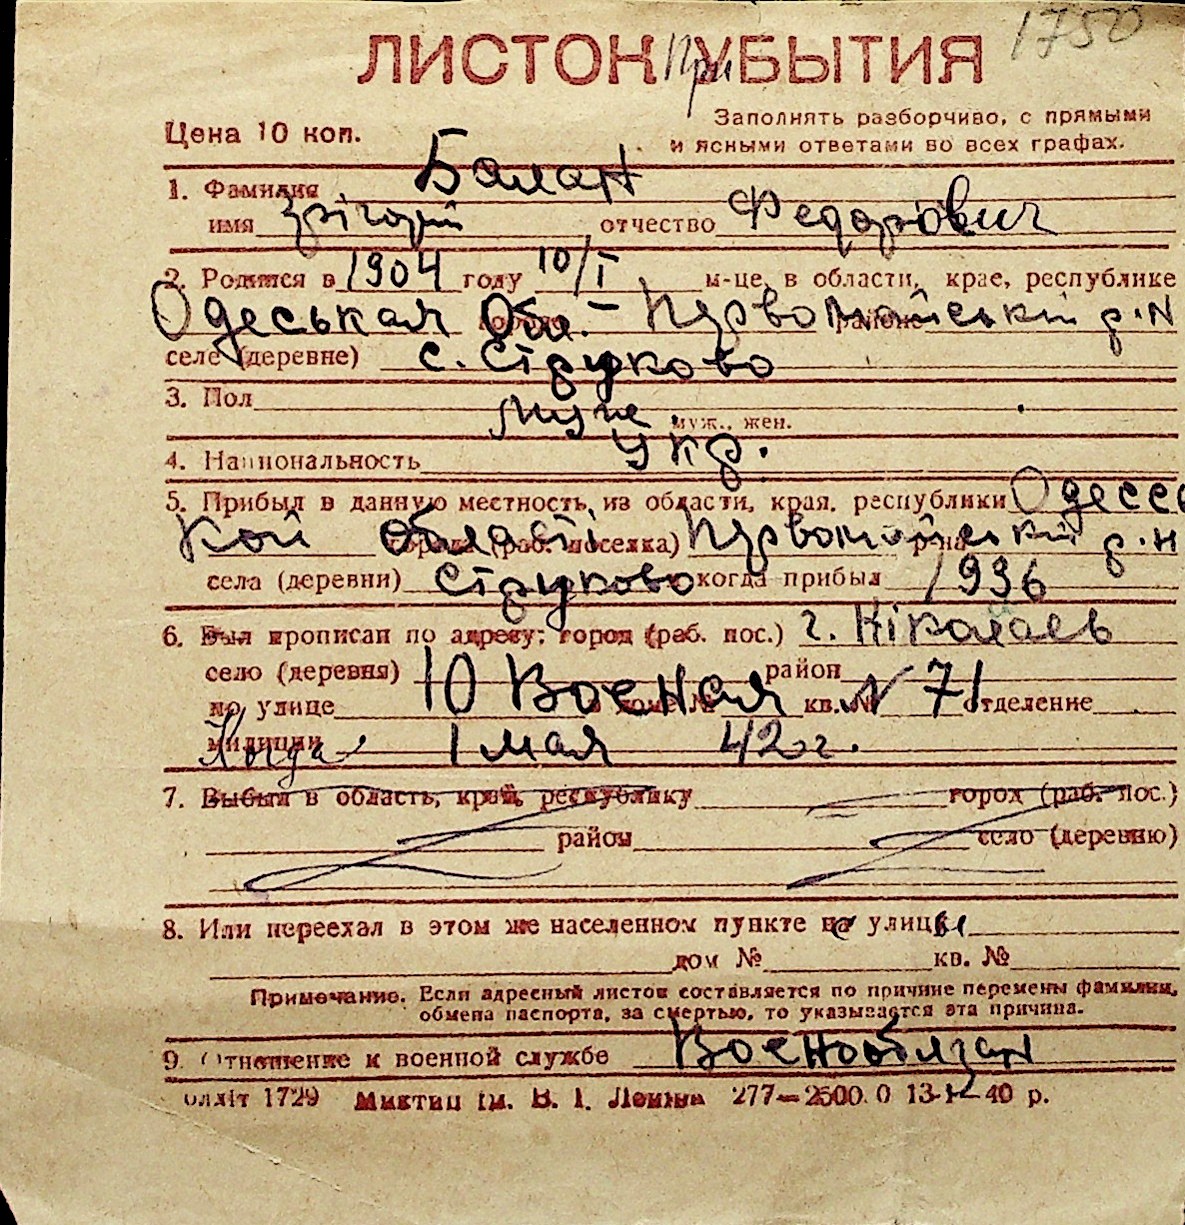 1750
ЛИСТОК При УБЫТИЯ
Заполнять разборчиво, с прямыми
Цена 10 коп. и ясными ответами во всех графах.
1. Фамилия Балан
имя Грігорій отчество Федорович
2. Родился в 1904 году 10/I м-це, в области, крае, республике
Одеськая Обл. - Первомайській р-н
селе (деревне) с. Струково
3. Пол муж. муж., жен.
4. Национальность укр.
5. Прибыл в данную местность из области, края, республики Одесс
кой області города (раб. поселка) Первомайській р-на р-н
села (деревни) Струково когда прибыл 1936
6. Был прописан по адресу: город (раб. пос.) г. Ніколаев
село (деревня) район
по улице 10 Военая в доме № кв. № N 71 отделение
милиции Когда 1 мая 42 г.
7. Выбыл в область, край, республику город (раб. пос.)
район село (деревню)
8. Или переехал в этом же населенном пункте с улицы
дом № кв. №
Примечание. Если адресный листок составляется по причине перемены фамилии,
обмена паспорта, за смертью, то указывается эта причина.
9. Отношение к военной службе Военообязан
олліт 1729 Миктип ім. В. І. Леніна 277—2500.0 13-12-40 р.